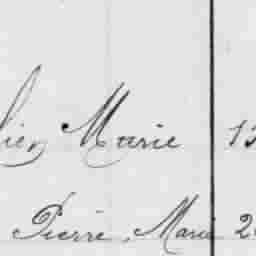 Marie 13
Pierre, Marie 2